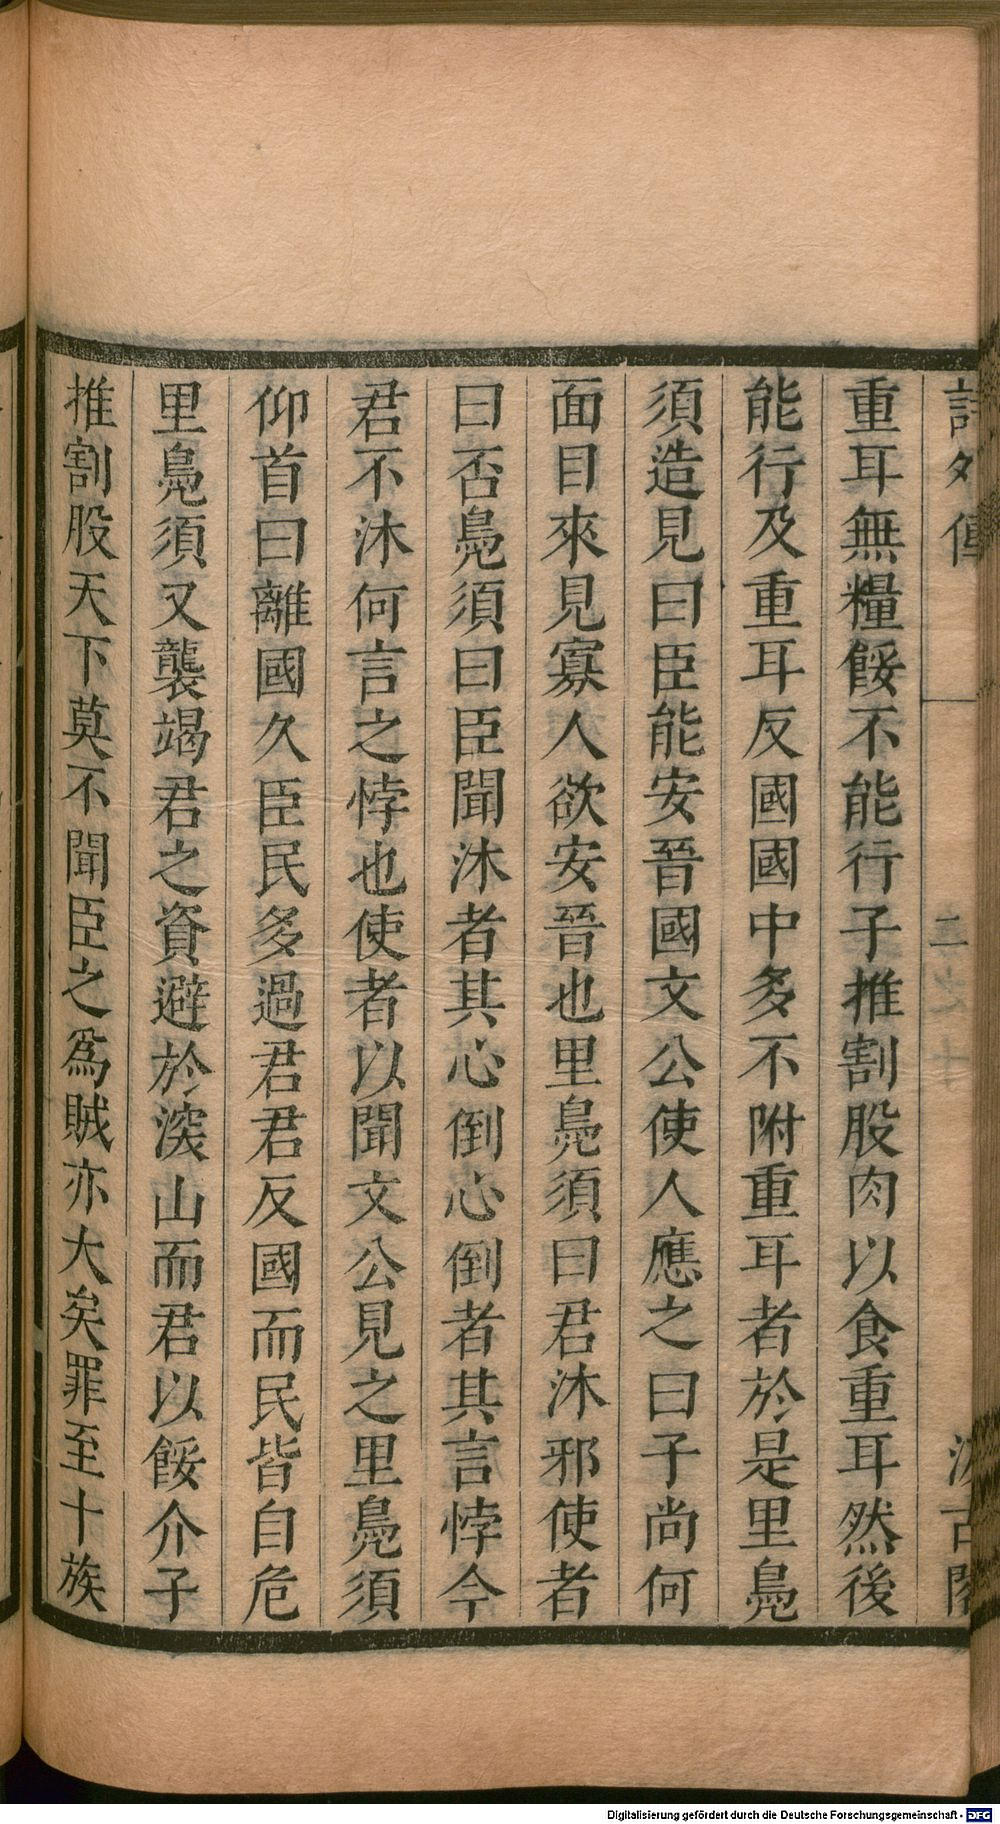 詩外傳 二之十 汲古閣
重耳無糧餒不能行子推割股肉以食重耳然後
能行及重耳反國國中多不附重耳者於是里鳧
須造見曰臣能安晉國文公使人應之曰子尚何
面目來見寡人欲安晉也里鳧須曰君沐邪使者
曰否鳧須曰臣聞沐者其心倒心倒者其言悖今
君不沐何言之悖也使者以聞文公見之里鳧須
仰首曰離國久臣民多過君君反國而民皆自危
里鳧須又襲竭君之資避於深山而君以餒介子
推割股天下莫不聞臣之爲賊亦大矣罪至十族
Digitalisierung gefördert durch die Deutsche Forschungsgemeinschaft - DFG